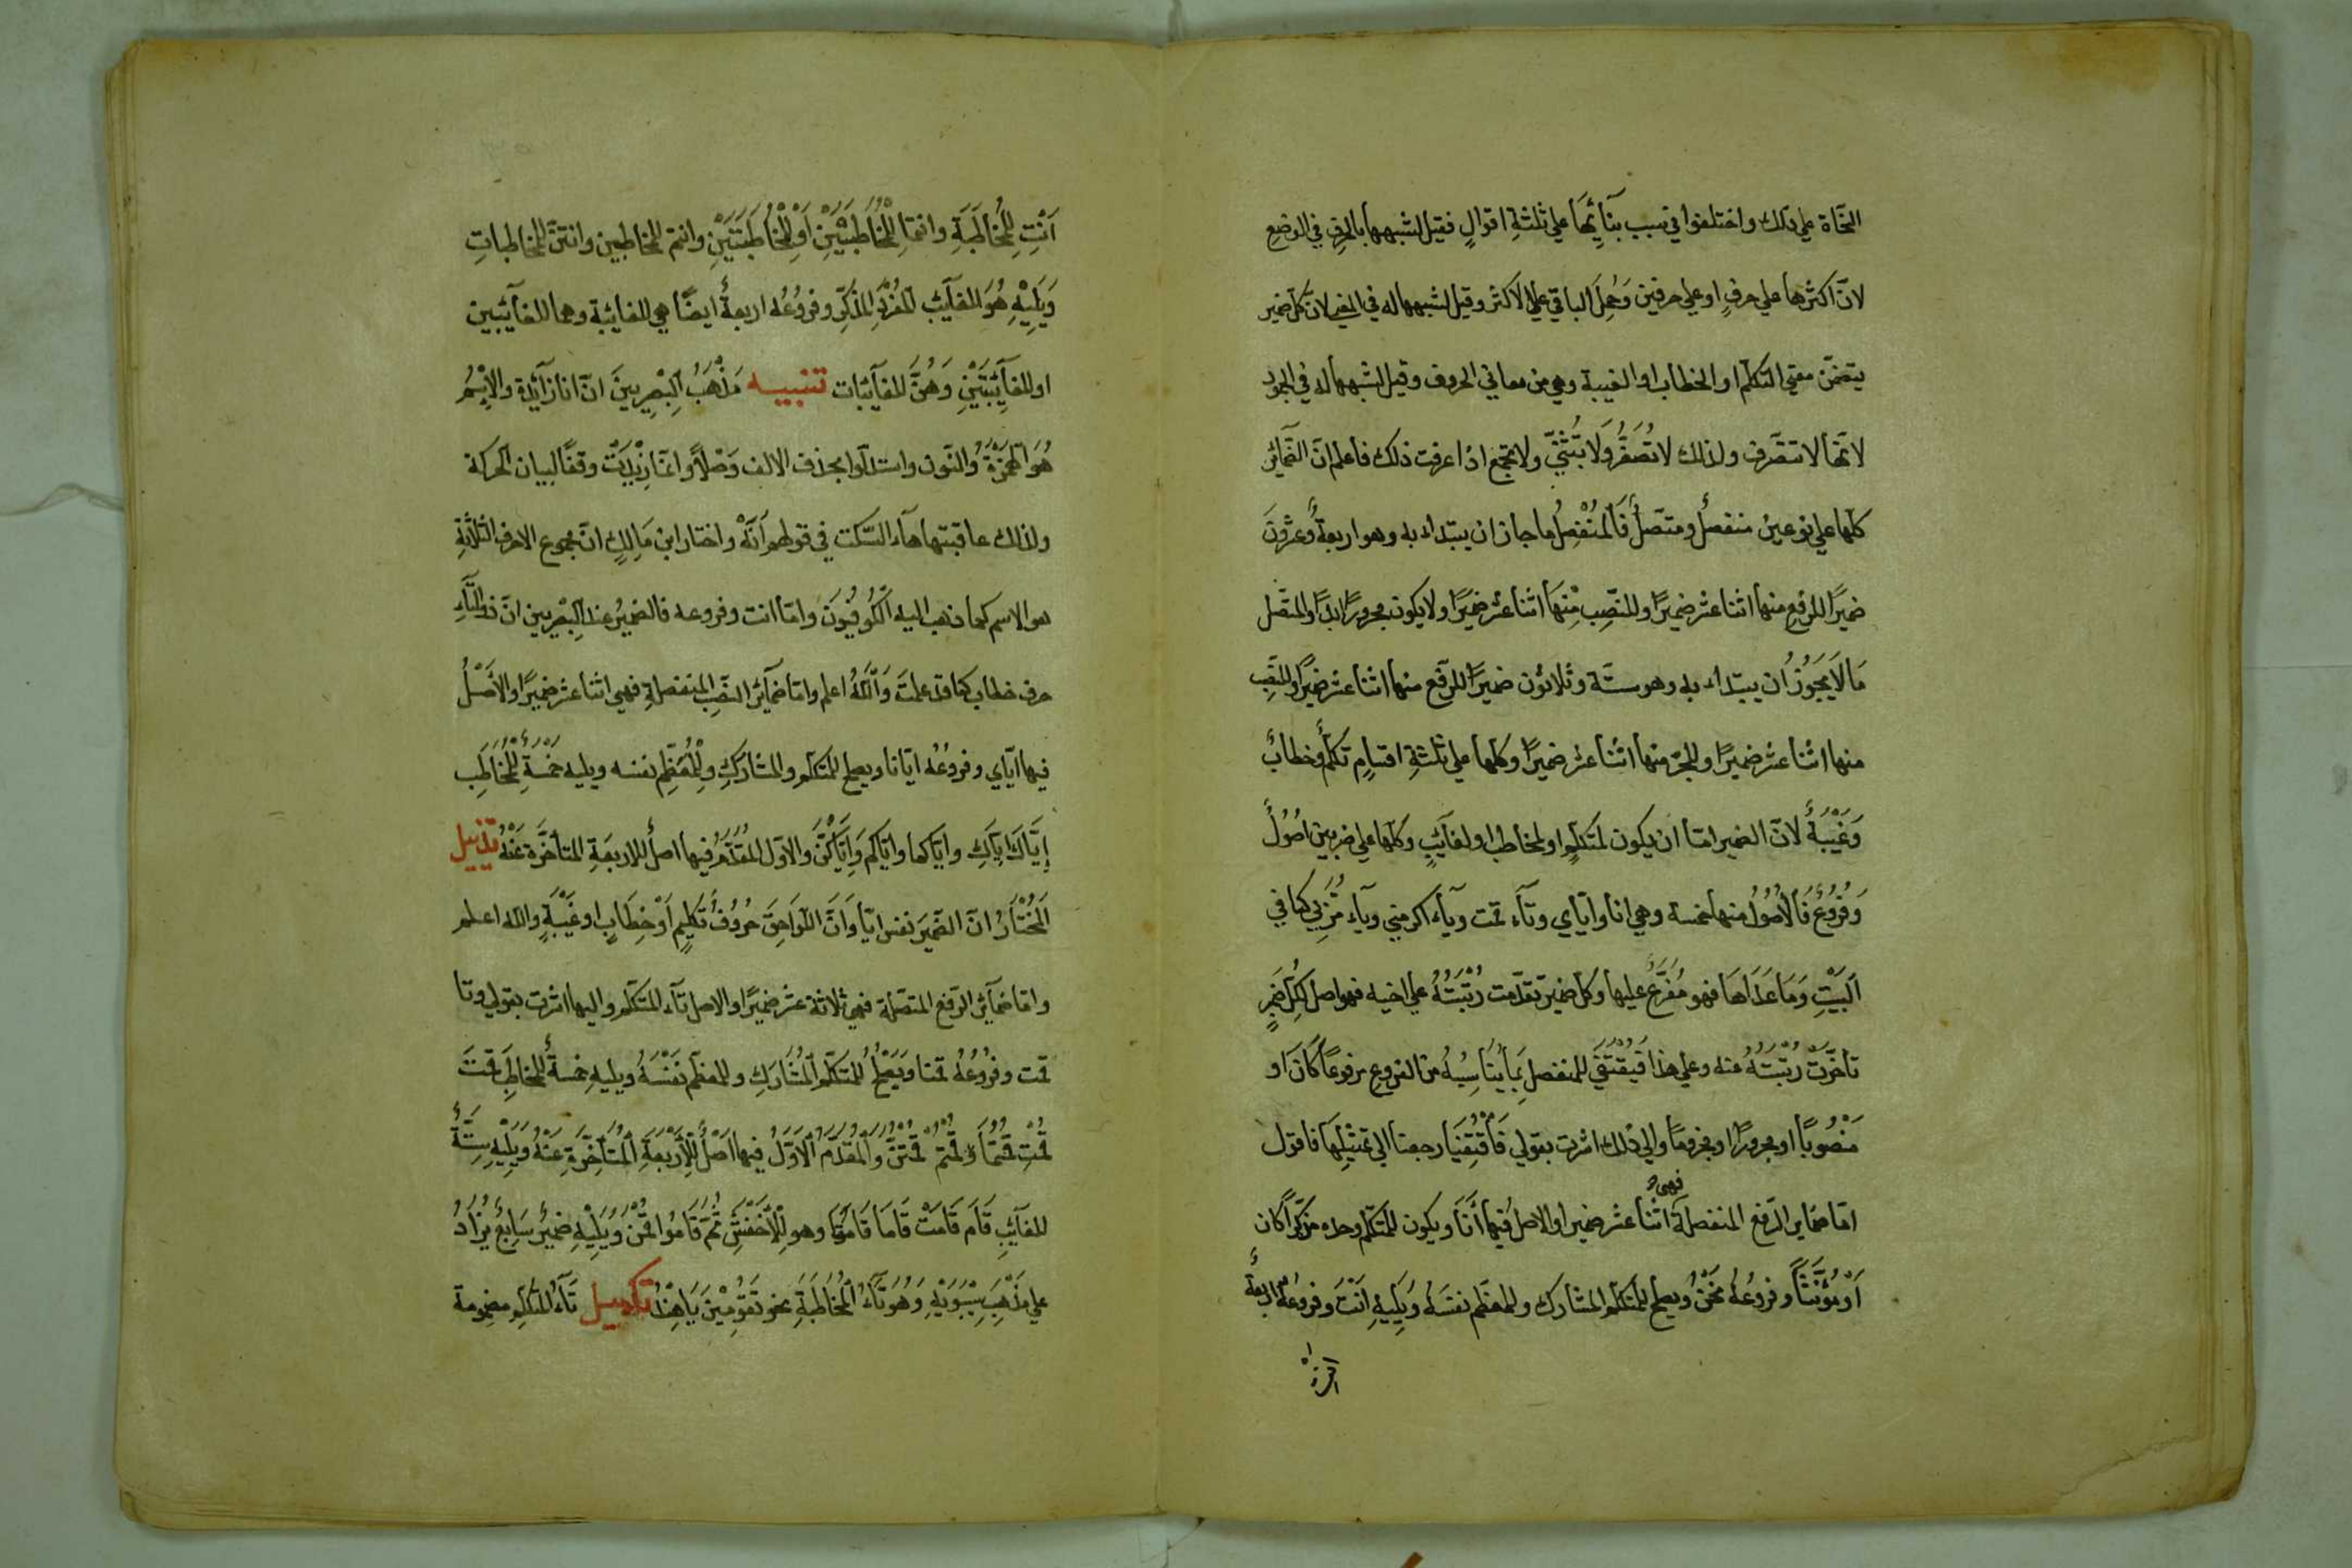 النحاة علي ذلك واختلفوا في سبب بنَآئِهَا علي ثلثةِ اقوالٍ فقيل لشبهها بالحرفِ في الوضعِ
لانّ اكثرها علي حرفٍ او علي حرفين وَحُمِلَ الباقي علي الاكثر وقيل لشبهها له في المعني لانّ كلّ ضمير
يتضمّن معني التكلّم او الخطاب او الغيبة وهي من معاني الحروف وقيل لشبهها له في الجمود
لانّها لا تتصَرّف ولذلك لا تُصَغَّرُ وَلَا تُثَنّيَ ولا تجمع اذا عرفت ذلك فاعلم انّ الضّمآئر
كلّها علي نوعين منفصلٌ ومتّصلٌ فَالْمُنْفصِلُ ما جاز ان يبتداء به وهو اربعةٌ وعشرونَ
ضميرًا للرفعِ منها اثنا عشر ضميرًا وللنصِّبِ مِنْهَا اثنا عشر ضميرًا ولا يكون مجرورًا ابدًا والمتّصل
مَا لَا يَجَوُزُ ان يبتداء به وهو ستّة وثلاثون ضميرًا للرّفع منها اثنا عشر ضميرًا وللنّصِبِ
منها اثنا عشر ضميرًا وللجرّ منها اثنا عشر ضميرًا وكلّها علي ثلثةِ اقسامٍ تكلّمٌ وخطابٌ
وَغَيْبَةٌ لانّ الضمير امّا ان يكون لمتكلّمٍ او لمخاطبٍ او لغآيَبٍ وكلّها علي ضربين اصُوُلٌ
وَفُرُوُعٌ فَالْأُصُوُلُ منها خمسة وهي انا وايّاي وتآء قمت ويآء اكرمني ويآء مُرّبِي كما في
اَلبَيْتِ وَمَا عَدَاهَا فهو مُفَرَّعٌ عليها وكل ضمير تقدّمت رُتْبَتُهُ علي اخيه فهو اصل لِكُلِّ ضَمِيرٍ
تاخّرَتْ رُتْبَتُهُ عنه وعلي هذا فَيُقْتَفَي للمنفصل بِمَا يُنَاسِبُهُ من الفروع مرفوعًا كَانَ او
مَنْصُوبًا او مجرورًا او مجزومًا والي ذلك اشرت بقولي فَاقْتُفِيَا رجعنا الي تمثيلِهَا فاقول
امّا ضماير الرّفع المنفصلة فهي اثنا عشر ضميرا والاصل فيها أَنَا ويكون للمتكلّم وحده مذكّرًا كان
اَوْ مُؤَنَّثًا وفروعُهُ نَحْنُ ويصلح للمتكلّم المشارك وللمعظّم نفسَهُ وَيَلِيهِ اَنْتَ وفروعُهُ اربعةٌ
اَنْتِ لِلْمُخَاطَبَةِ وانتما لِلْمُخَاطَبَيْنِ اَوْ لِلْمُخَاطَبَتَيْنِ وانتم للمخاطبين وانتنّ للمخاطباتِ
وَيَلِيْهِ هُوَ للغآيَبِ لِلْمُفْرَدِ المُذَكّرِ وفروُعُه اربعةٌ ايضًا هي للغائبة وهما للغآئبين
او للغآئِبَتَيْنِ وَهُنَّ للغآئبات تنبيه مَذْهَبُ اَلْبِصْرِيينَ انّ انا زآئِدة والاِسْمُ
هُوَ اَلْهَمْزَةُ وَالنّون واستدلّوا بحذف الالف وَصْلًا وانّما زِيْدَتْ وقفًا لبيان الحركة
ولذلك عاقبتها هآء السّكت في قولهم اَنَهْ واختار ابن مَالِكٍ انّ مجموع الاحرف الثّلاثةِ
هو الاسم كما ذهب اليه اَلْكُوُفِيُونَ وامّا انت وفروعه فالضميرُ عند اَلْبِصْرِيين ان ذو التآء
حرف خطاب كما قد علمتَ وَاَللّهُ اعلم وامّا ضمآئر النّصِب المنفصلةِ فهي اثنا عشر ضميرًا والأصْلُ
فيها ايّاي وفروعُهُ ايّانا ويصلح للمتكلّم والمشاركِ وَلِلْمُعَظّمِ نفسه ويليه خَمْسَةٌ لِلْمُخَاطَبِ
إيَّاكَ ايّاكِ وايّاكما وايّاكم وَايَّاكُنَّ والاوّل المُقَدّمُ فيها اصلٌ للاربعَةِ المتأخّرَة عَنْهُ تذييل
اَلْمُخْتَارُ انّ الضّميرَ نفس ايّا وَاَنَّ اللّوَاحِقَ حُرُوُفُ تَكَلّمٍ اَوْ خِطَابٍ او غَيْبَةٍ والله اعلم
وامّا ضمآئر الرّفع المتصّلة فهي ثلاثة عشر ضميرًا والاصل تآء المتكلّم واليها اشرت بقولي وتا
قمت وفروُعُهُ قمنا وَيَصْلُحُ للمتَكَلّم اَلْمُشَارَكِ وللمعظّم نَفْسَهُ ويليهِ خمسةٌ للمخاطَبِ قمتَ
قُمْتِ قُمْتُمَا وَقُمْتُمْ قُمْتُنَّ وَاَلْمُقَدَّمُ اَلْاَوَّلُ فيها اَصْلٌ لِلْأَرْبَعَةِ اَلْمُتَأَخِّرَةِ عَنْهُ وَيَلِيْهِ سِتَّةٌ
للغآيبِ قَامَ قَامَتْ قَامَا قَامَتَا وهو لِلْأَخْفَشِ ثُمّ قَامُوا قُمْنَ وَيَلِيْهِ ضميرٌ سَابِعٌ يُزَادُ
علي مَذْهَبِ سِيْبَوَيْهِ وَهُوَ تَآءُ اَلْمُخَاطَبَةِ نحو تَقُوُمِيْنَ يَا هِنْدُ تكميل تَآءُ المتكلّم مضمومة